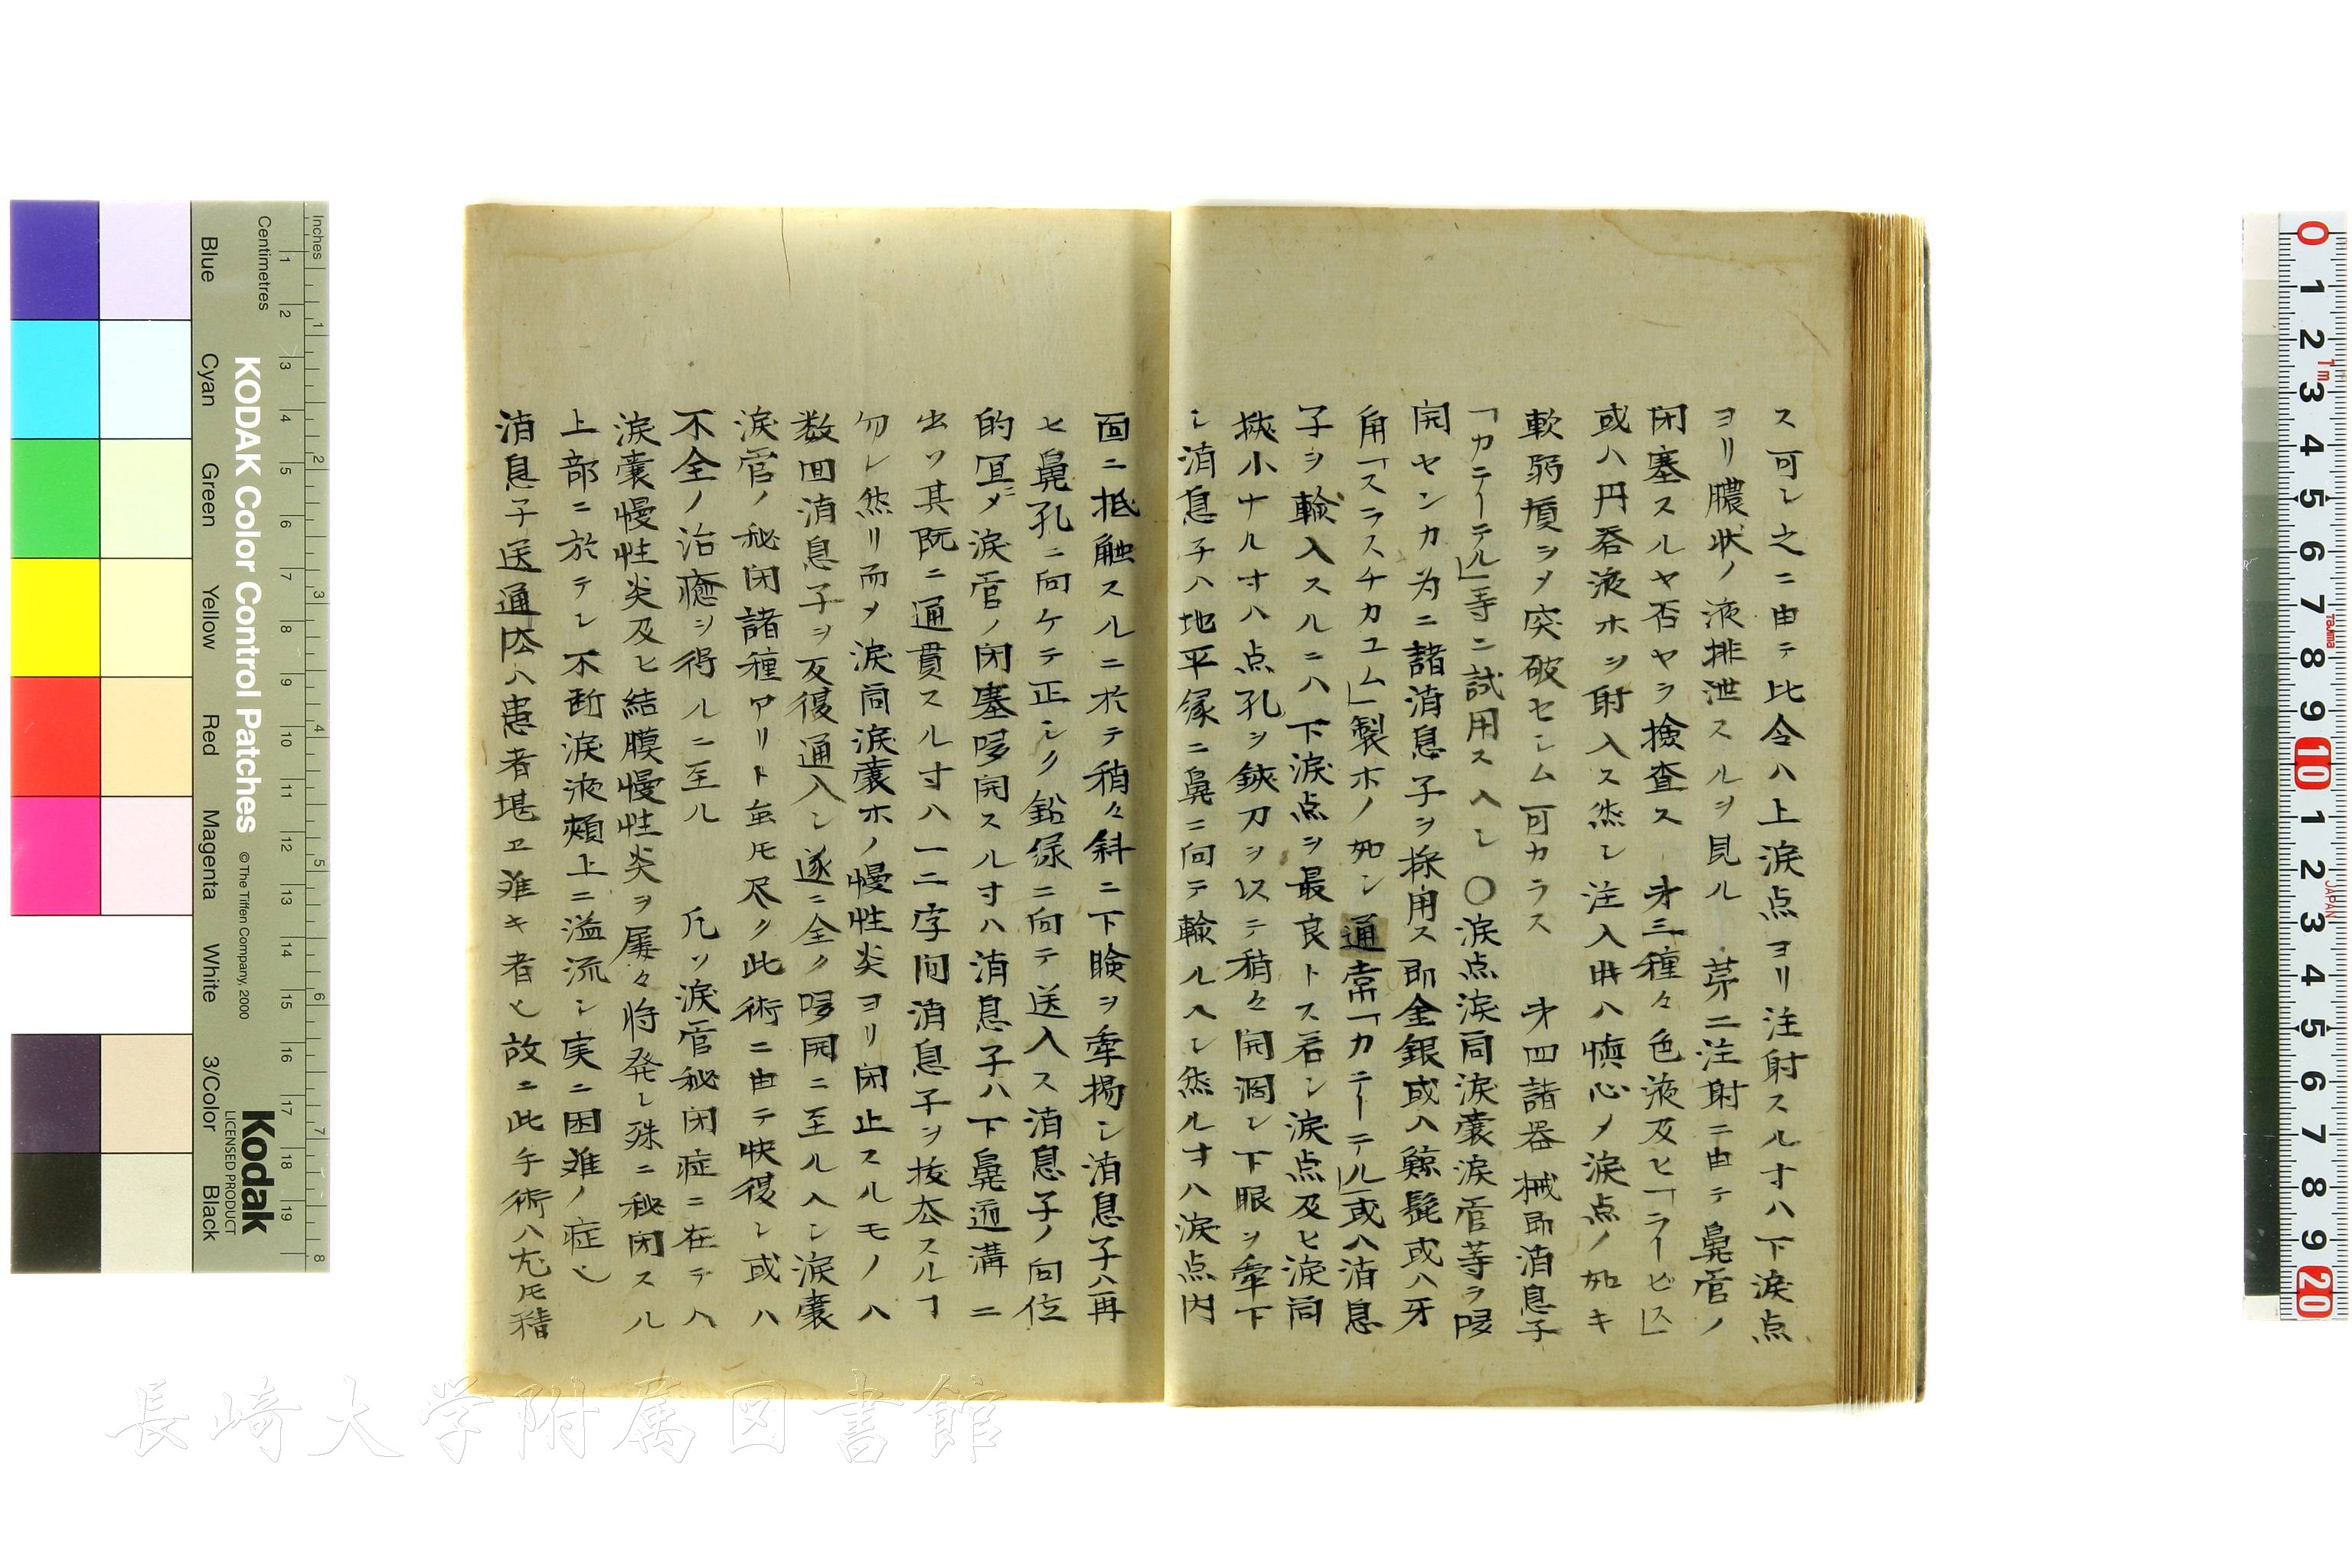 ス可シ之ニ由テ比令ハ上涙点ヨリ注射スル寸ハ下涙点
ヨリ膿状ノ液排泄スルヲ見ル 苐二注射ニ由テ鼻管ノ
閉塞スルヤ否ヤヲ撿査ス 㐧三種々色液及ヒ「ラーピス」
或ハ丹呑液ホヲ射入ス然シ注入時ハ慎心メ涙点ノ如キ
軟弱質ヲメ突破セシム可カラス 㐧四諸器械即消息子
「カテーテル」等ニ試用スヘシ〇涙点涙同涙囊涙管等ヲ
開センカ為ニ諸消息子ヲ採用ス即金銀或ハ鯨髭或ハ牙
角「スラスチカユム」製ホノ如シ通常「カテーテル」或ハ消息
子ヲ輸入スルニハ下涙点ヲ最良トス若シ涙点及ヒ涙同
狹小ナル寸ハ点孔ヲ鋏刀ヲ以テ稍々開濶シ下眼ヲ牽下
シ消息子ハ地平縁ニ鼻ニ向テ輸ルヘシ然ル寸ハ涙点内
面ニ抵触スルニ於テ稍々斜ニ下瞼ヲ牽揚シ消息子ハ再
ヒ鼻孔ニ向ケテ正シク鉛縁ニ向テ送入ス消息子ノ向位
的冝メ涙管ノ閉塞開スル寸ハ消息子ハ下鼻通溝ニ
出ツ其既ニ通貫スル寸ハ一二字间消息子ヲ抜去スルヿ
勿レ然リ而メ涙同涙囊ホノ慢性炎ヨリ閉止スルモノハ
数回消息子ヲ反復通入シ遂ニ全ク開ニ至ルヘシ涙囊
涙管ノ秘閉諸種アリト虽𪜈尽ク此術ニ由テ快復シ或ハ
不全ノ治癒ヲ得ルニ至ル 凡ソ涙管秘閉症ニ在テハ
涙囊慢性炎及ヒ結膜慢性炎ヲ屢々將発シ殊ニ秘閉スル
上部ニ於テシ不断涙液頰上ニ溢流シ実ニ困难ノ症也
消息子送通法ハ患者堪ヱ难キ者也故ニ此手術ハ尤𪜈稽
長崎大学附属図書館
KODAK Color Control Patches
© The Tiffen Company, 2000
Kodak
LICENSED PRODUCT
Inches
Centimetres
Blue
Cyan
Green
Yellow
Red
Magenta
White
3/Color
Black
1 2 3 4 5 6 7 8 9 10 11 12 13 14 15 16 17 18 19
1 2 3 4 5 6 7 8
0 1 2 3 4 5 6 7 8 9 10 1 2 3 4 5 6 7 8 9 20
1m
Tajima
JAPAN